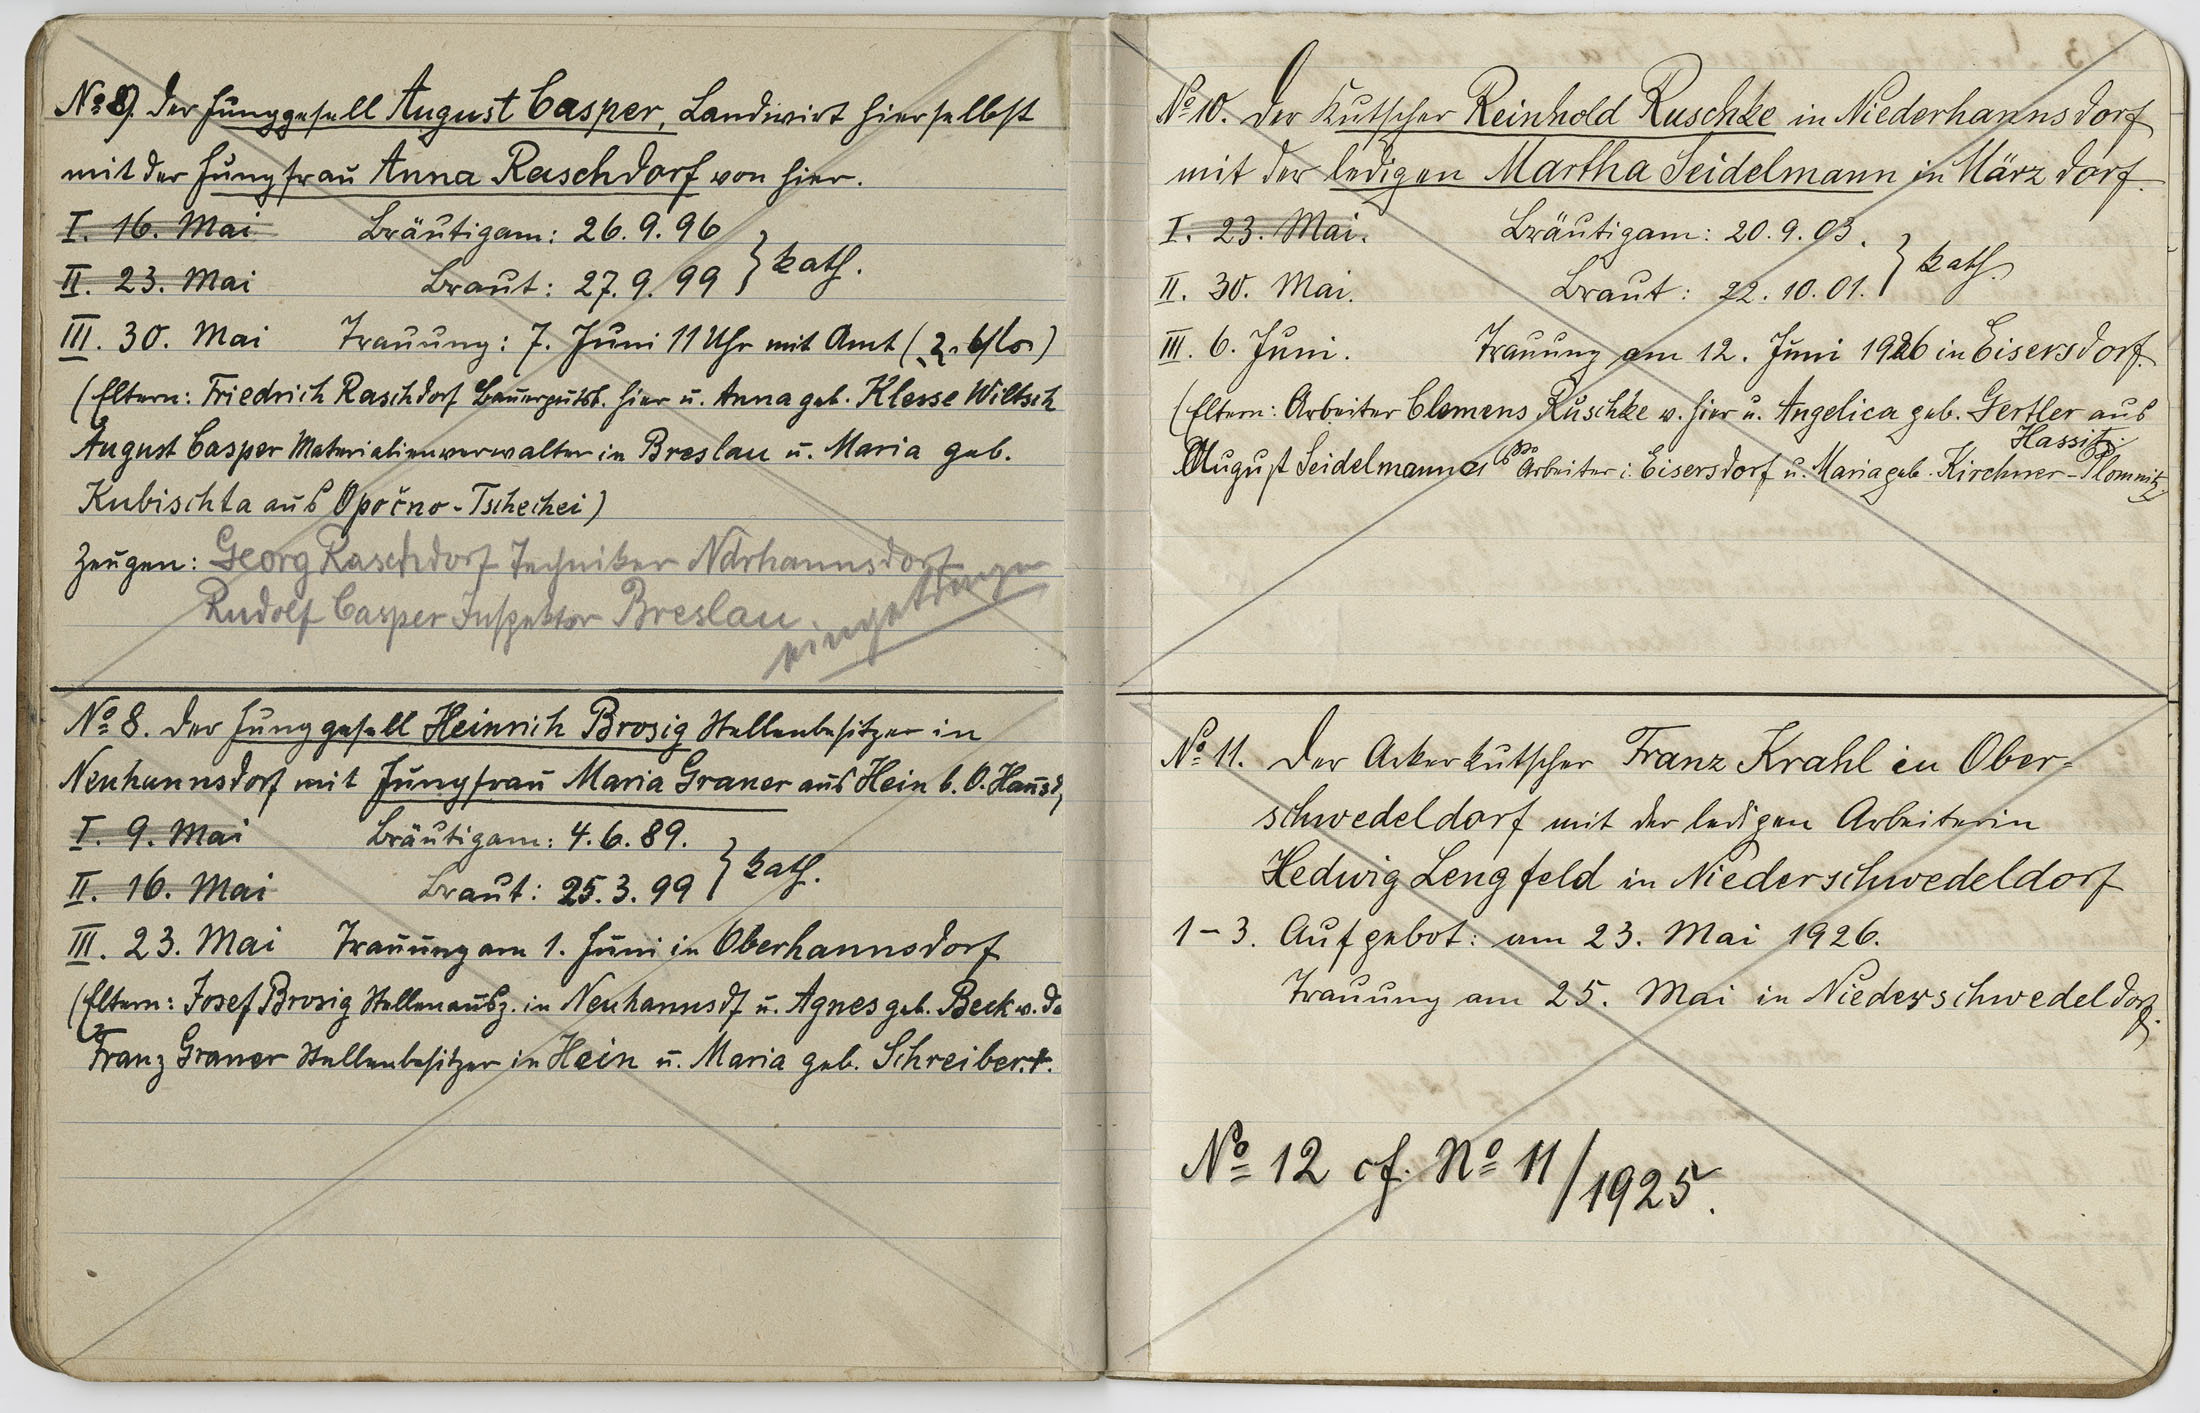 No 9. Der Junggesell August Casper, Landwirt hierselbst
mit der Jungfrau Anna Raschdorf von hier.
I. 16. Mai Bräutigam: 26.9.96
II. 23. Mai Braut: 27.9.99 } kath.
III. 30. Mai Trauung: 7. Juni 11 Uhr mit Amt
(Eltern: Friedrich Raschdorf Bauergutsb. hier u. Anna geb. Klesse Wiltsch
August Casper Materialienverwalter in Breslau u. Maria geb.
Kubischta aus Opočno - Tschechei)
Zeugen: Georg Raschdorf Techniker Ndrhannsdorf
Rudolf Casper Inspektor Breslau.
eingetragen
No 8. Der Junggesell Heinrich Brosig Stellenbesitzer in
Neuhannsdorf mit Jungfrau Maria Graner aus Hein b. O. Hausd,
I. 9. Mai Bräutigam: 4.6.89.
II. 16. Mai Braut: 25.3.99 } kath.
III. 23. Mai Trauung am 1. Juni in Oberhannsdorf
(Eltern: Josef Brosig Stellenausz. in Neuhannsdf u. Agnes geb. Beck v. da
Franz Graner Stellenbesitzer in Hein u. Maria geb. Schreiber. †.
No 10. Der Kutscher Reinhold Ruschke in Niederhannsdorf
mit der ledigen Martha Seidelmann in Märzdorf.
I. 23. Mai. Bräutigam: 20.9.03.
II. 30. Mai. Braut: 22.10.01. } kath.
III. 6. Juni. Trauung am 12. Juni 1926 in Eisersdorf.
(Eltern: Arbeiter Clemens Ruschke v. hier u. Angelica geb. Gertler aus
Hassitz.
August Seidelmann Arbeiter i. Eisersdorf u. Maria geb. Kirchner - Plomnitz
No 11. Der Ackerkutscher Franz Krahl in Ober-
schwedeldorf mit der ledigen Arbeiterin
Hedwig Lengfeld in Niederschwedeldorf
1-3. Aufgebot: am 23. Mai 1926.
Trauung am 25. Mai in Niederschwedeldorf.
No 12 cf. No 11/1925.